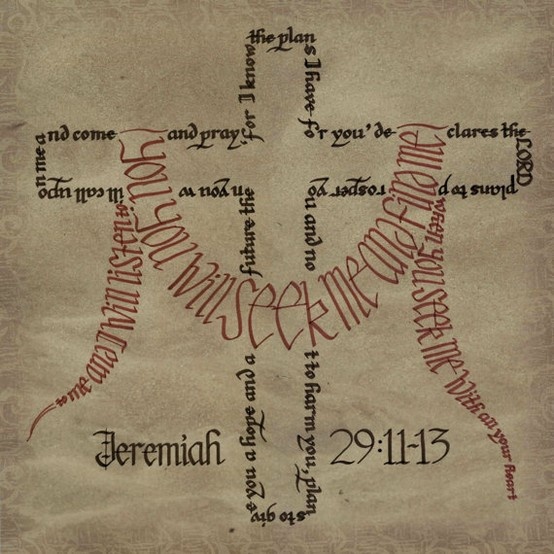 for I know
the plan
s I have fo
r you' de-
clares the
LORD
plans to p
rosper yo
u and no
t to harm you, plan
s to giv
e you a hope and a
future the
n you w
ill call upo
n me a
nd come
and pray
to me and I will listen to
you you will seek me and find me
when you seek me with all your heart
Jeremiah 29:11-13